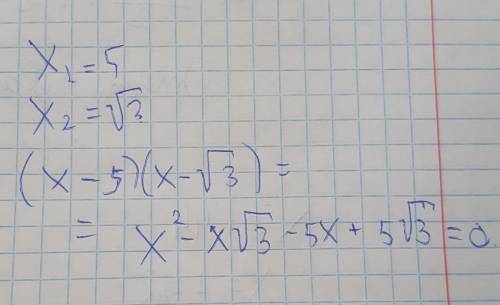 x₁ = 5
x₂ = √3
(x - 5)(x - √3) =
= x² - x√3 - 5x + 5√3 = 0